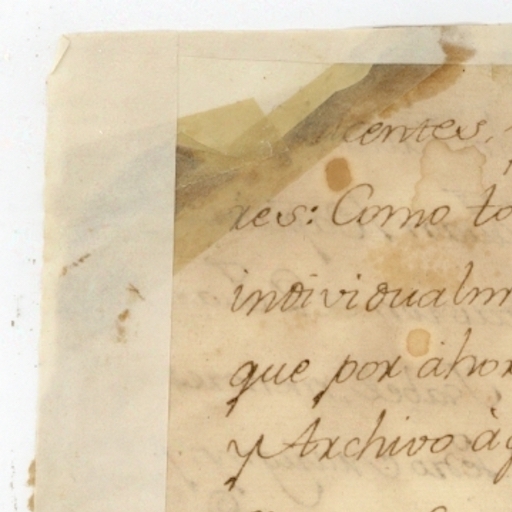 centes,
res: Como to
individualm
que por ahor
y Archivo à